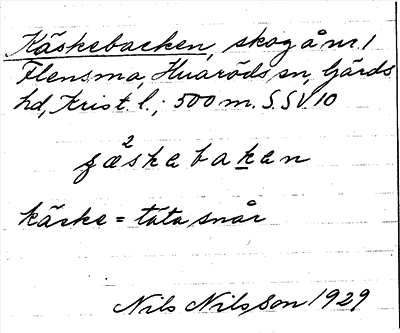 Käskebacken, skog å nr 1
Flensma, Huaröds sn, Gärds
hd, Krist. l.; 500 m. S.SV 10
²
ʝæskebaḵen
käske = täta snår
Nils Nilsson 1929